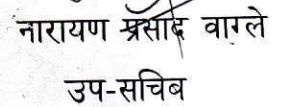 नारायण प्रसाद वाग्ले
उप-सचिब